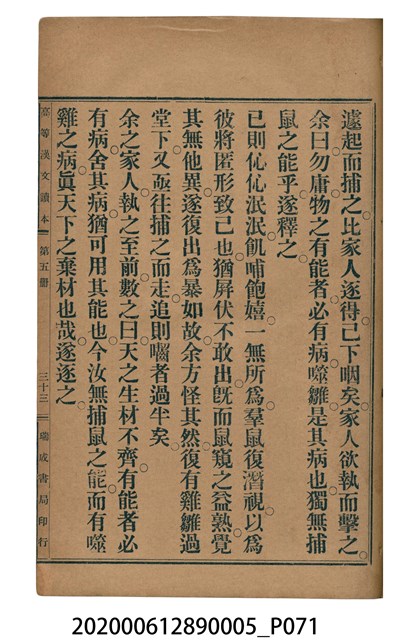 遽起而捕之比家人逐得已下咽矣家人欲執而擊之
余曰勿庸物之有能者必有病噬雛是其病也獨無捕
鼠之能乎遂釋之
已則伈伈泯泯飢哺飽嬉一無所爲羣鼠復潛視以爲
彼將匿形致己也猶屏伏不敢出旣而鼠窺之益熟覺
其無他異遂復出爲暴如故余方怪其然復有雞雛過
堂下又亟往捕之而走追則嚙者過半矣
余之家人執之至前數之曰天之生材不齊有能者必
有病舍其病猶可用其能也今汝無捕鼠之能而有噬
雞之病眞天下之棄材也哉遂逐之
高等漢文讀本 第五册 三十三 瑞成書局印行
202000612890005_P071